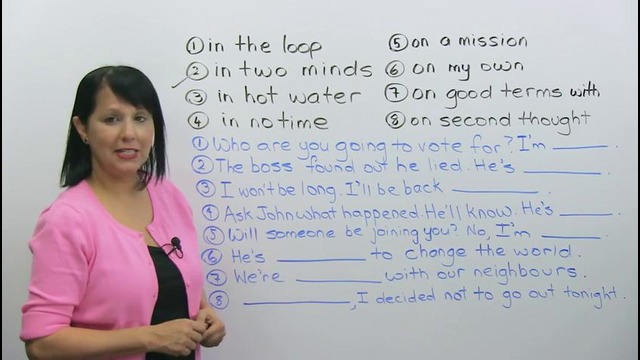 ① in the loop
② in two minds
③ in hot water
④ in no time
⑤ on a mission
⑥ on my own
⑦ on good terms with
⑧ on second thought
① Who are you going to vote for? I'm ______.
② The boss found out he lied. He's ______.
③ I won't be long. I'll be back ______.
④ Ask John what happened. He'll know. He's ______.
⑤ Will someone be joining you? No, I'm ______.
⑥ He's ______ to change the world.
⑦ We're ______ with our neighbours.
⑧ ______, I decided not to go out tonight.